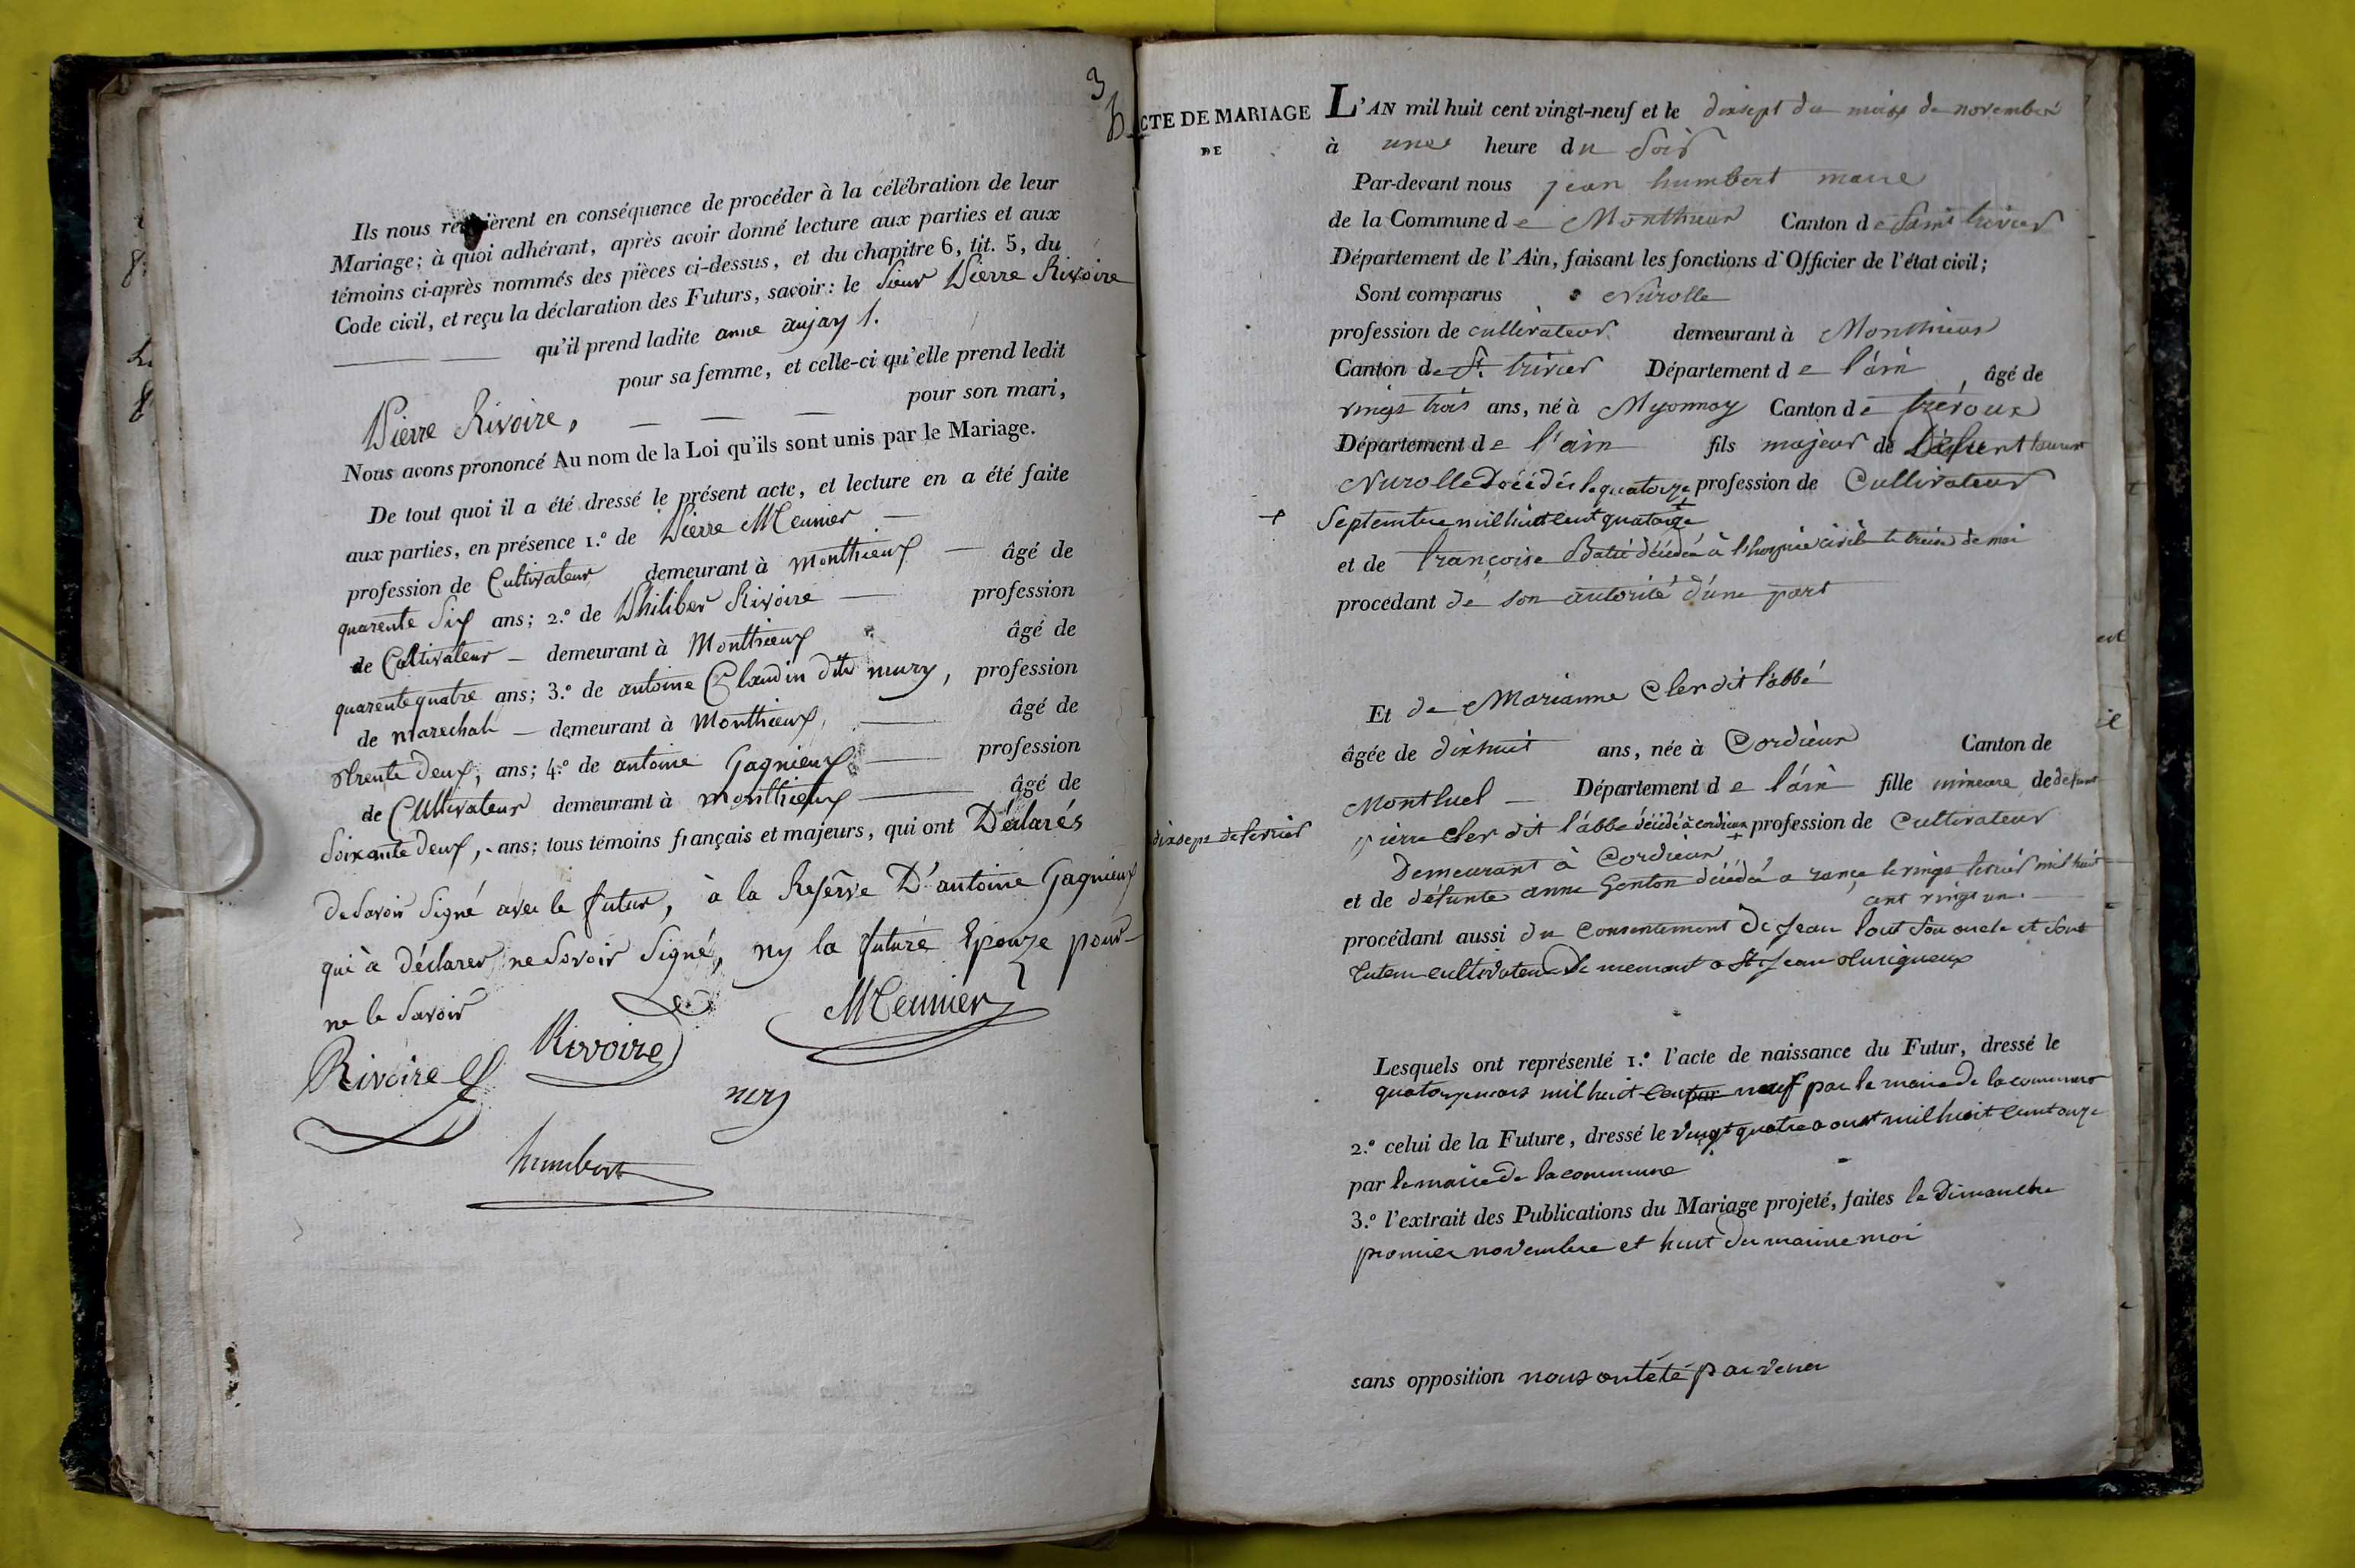 3
Ils nous requièrent en conséquence de procéder à la célébration de leur
Mariage; à quoi adhérant, après avoir donné lecture aux parties et aux
témoins ci-après nommés des pièces ci-dessus, et du chapitre 6, tit. 5, du
Code civil, et reçu la déclaration des Futurs, savoir: le Sieur Pierre Rivoire
qu'il prend ladite anne aujay 1.
pour sa femme, et celle-ci qu'elle prend ledit
Pierre Rivoire, pour son mari,
Nous avons prononcé Au nom de la Loi qu'ils sont unis par le Mariage.
De tout quoi il a été dressé le présent acte, et lecture en a été faite
aux parties, en présence 1.º de Pierre Meunier
profession de Cultivateur demeurant à monthieux âgé de
quarente Six ans; 2.º de Philiber Rivoire profession
de Cultivateur demeurant à Monthieux âgé de
quarente quatre ans; 3.º de antoine Claudin dite mury, profession
de marechal demeurant à Monthieux, âgé de
trente deux, ans; 4.º de antoine Gagnieux profession
de Cultivateur demeurant à monthieux âgé de
Soixante deux, ans; tous témoins français et majeurs, qui ont Déclarés
de Savoir Signé avec le futur, à la Reserve D'antoine Gagnieux
qui à déclarer ne Savoir Signé, ny la future Epouze pour
ne le Savoir
Rivoire Rivoire Meunier
mry
humbert
ACTE DE MARIAGE
DE
L'AN mil huit cent vingt-neuf et le dixsept du mois de novembre
à une heure du Soir
Par-devant nous jean humbert maire
de la Commune de Monthieux Canton de Saint trivier
Département de l'Ain, faisant les fonctions d'Officier de l'état civil;
Sont comparus Nurolle
profession de cultivateur demeurant à Monthieux
Canton de St. trivier Département de l'ain, âgé de
vingt trois ans, né à Myonnay Canton de trévoux
Département de l'ain fils majeur de Défunt laurent
Nurolle Décédé le quatorze profession de Cultivateur
+ Septembre mil huit cent quatorze
et de françoise Batié décédé à l'hospice civil le treise de mai
procédant de son autorité d'une part
Et de Marianne Cler dit l'abbé
âgée de dixhuit ans, née à Cordieux Canton de
Montluel Département de l'ain fille mineure de defunt
pierre cler dit l'abbé décédé à cordieux + profession de Cultivateur
dixsept de fevrier
Demeurant à Cordieux
et de défunte anne Genton décédé a rance le vingt fevrier mil huit
cent vingt un.
procédant aussi du Consentement De Jean Pout Son oncle et Sont
tuteur cultivateur De meurant a St Jean thurigneux
Lesquels ont représenté 1.º l'acte de naissance du Futur, dressé le
quatorze mars mil huit cent neuf par le maire de la commune
2.º celui de la Future, dressé le vingt quatre aoust mil huit cent onze
par le maire de la commune
3.º l'extrait des Publications du Mariage projeté, faites le Dimanche
promier novembre et huit du maime moi
sans opposition nous ont été parvenu